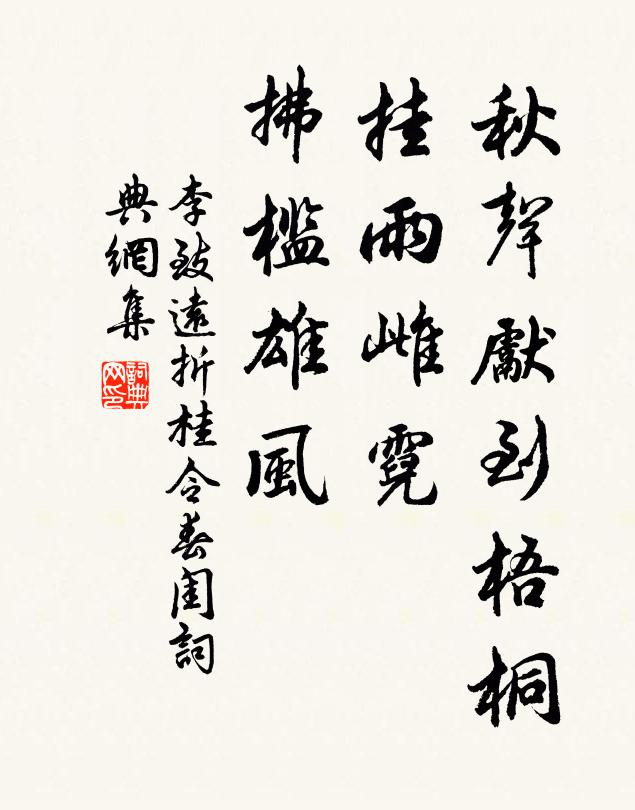 秋聲獻到梧桐
挂雨雌霓
拂檻雄風
李致遠折桂令春閨詞
典網集
詞典
网印